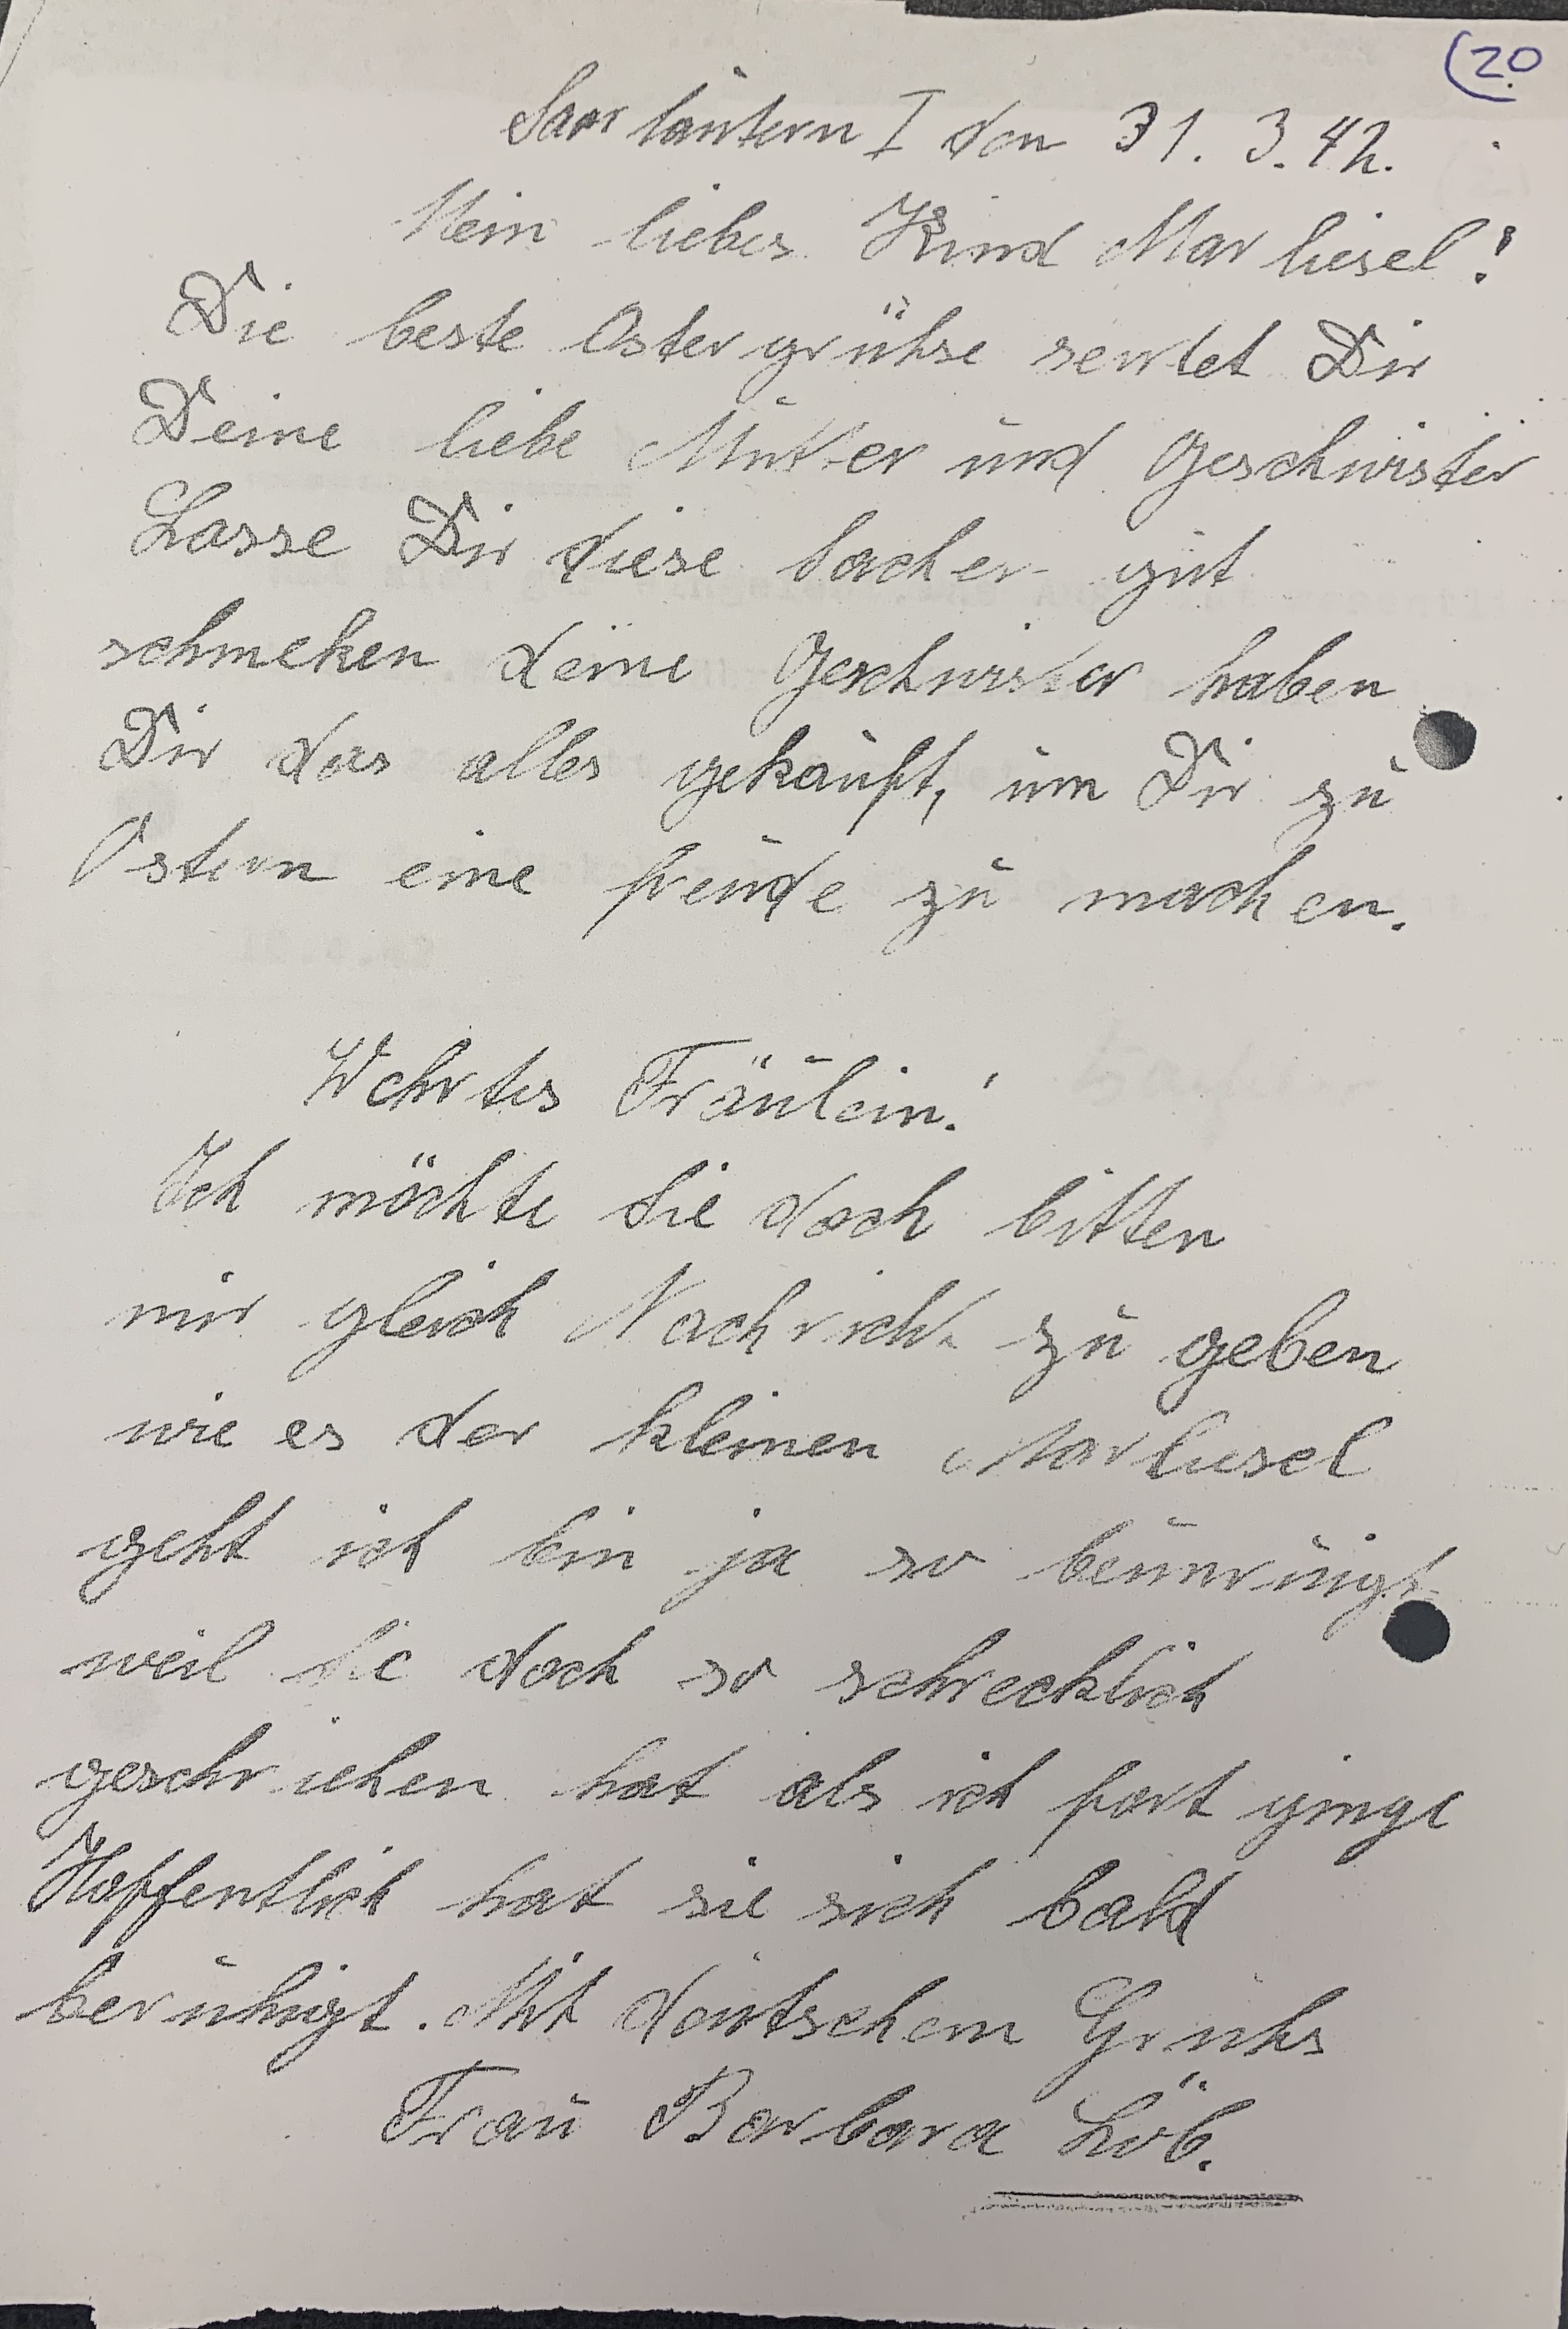 (20
Saarlautern I den 31. 3. 42.
Mein liebes Kind Marliesel!
Die beste Ostergrühse sendet Dir
Deine liebe Mutter und Geschwister
Lasse Dir diese Sachen gut
schmeken deine Geschwister haben
Dir das alles gekauft, um Dir zu
Ostern eine freude zu machen.
Wehrtes Fräulein!
Ich möchte Sie doch bitten
mir gleich Nachricht zu geben
wie es der kleinen Marliesel
geht ich bin ja so beunruigt
weil Sie doch so schrecklich
geschriehen hat als ich fort ginge
Hoffentlich hat sie sich bald
beruhigt. Mit deutschem Gruhs
Frau Barbara Löb.